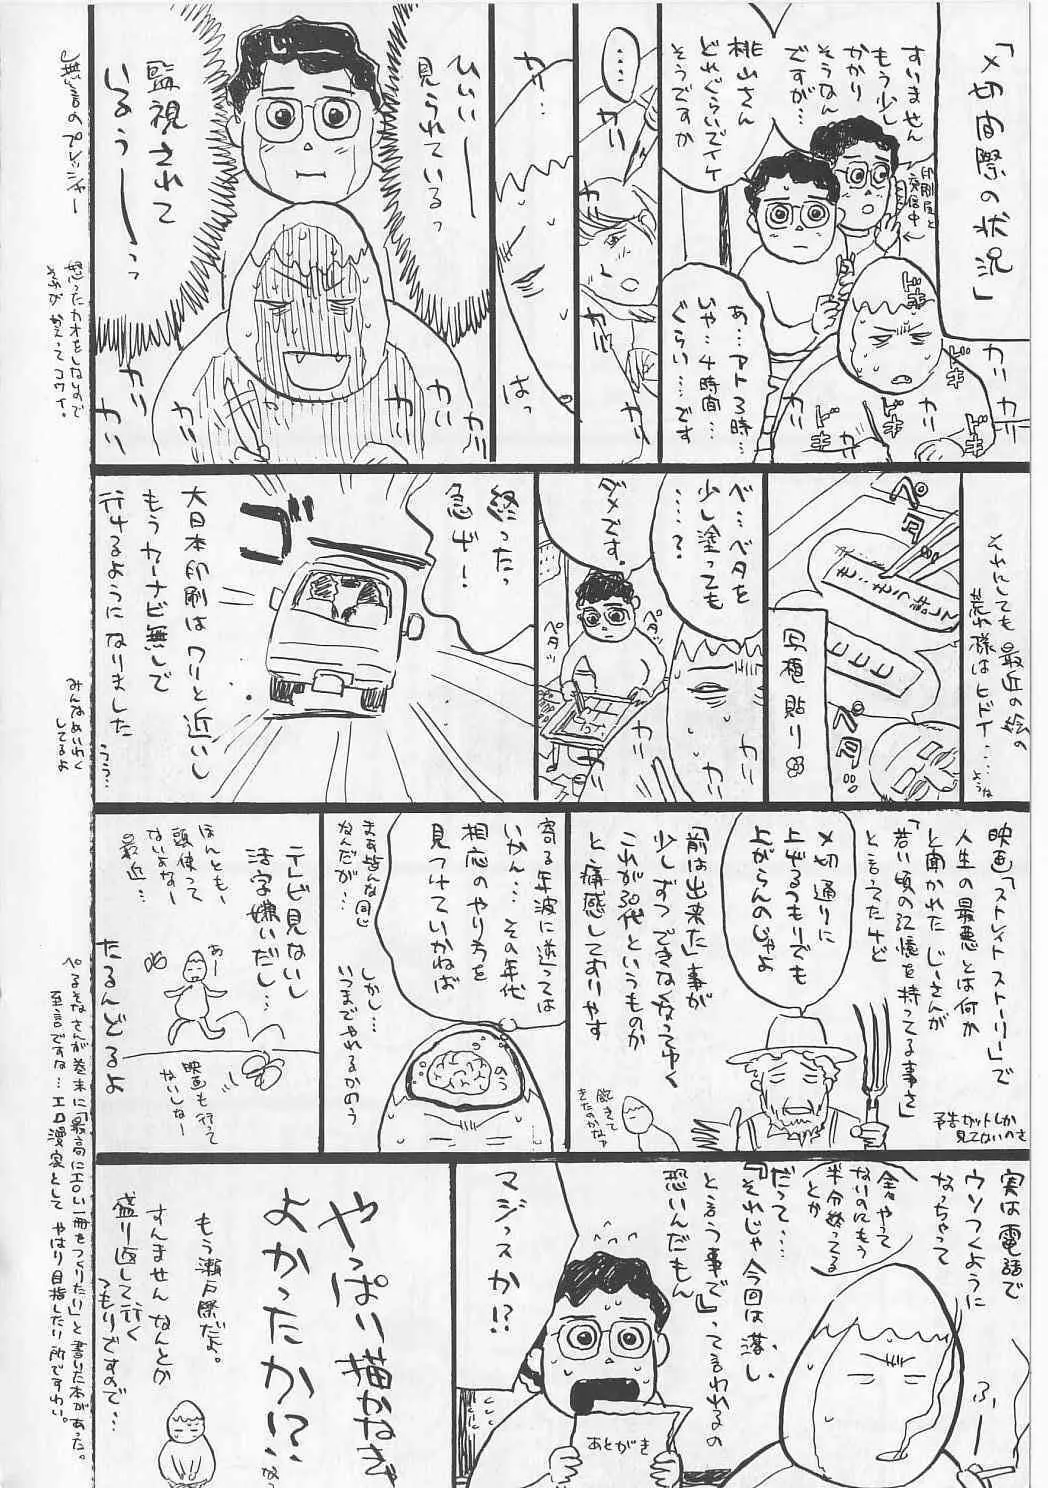 「〆切間際の状況」
すいません
もう少し
かかり
そうなん
ですが…
印刷屋と
交信中
桃山さん
どれぐらいでイケ
そうですか
あ…アト3時…
いや…4時間…
ぐらい…です
ドキ
ドキ
ドキ
ドキ
ドキ
カリ
カリ
カリ
……
カリ
カリ
カリ…
はっ
ひいぃー
見られているっ
監視されて
いるぅーーっっ
カリ
カリ
カリ
カリ
無言のプレッシャー
怒ったカオをしないので
それがかえってコワイ。
それにしても最近の絵の
荒れ様はヒドイ…
ような
ペタ
写植貼り
ペタ
ベ…ベタを
少し塗っても
……?
ダメです。
ペタッ
ペタッ
カリ
カリ
終ったっ
急げー!
ゴ
大日本印刷はワリと近いし
もうカーナビ無しで
行けるようになりました
うう…
みんなめいわく
してるよ
映画「ストレイトストーリー」で
人生の最悪とは何か
と聞かれたじーさんが
「若い頃の記憶を持ってる事さ」
と言ってたけど
予告カットしか
見てないのさ
〆切通りに
上げるつもりでも
上がらんのじゃよ
「前は出来た」事が
少しずつできなくなってゆく
これが30代というものか
と痛感しておりやす
飽きて
きたのかなァ
寄る年波に逆っては
いかん…その年代
相応のやり方を
見つけていかねば
まあ皆んな同じ
なんだが…
のう
しかし…
いつまでやれるかのう
テレビ見ないし
活字嫌いだし…
ほんとも、
頭使って
ないよなー
最近…
あー
映画も行って
ないしなー
たるんどるよ
実は電話で
ウソつくように
なっちゃって
全々やって
ないのにもう
半分終ってる
とか
ふぅー
だって…
『それじゃ今回は落し、
と言う事で』って言われるの
恐いんだもん
マジっスか!?
あとがき
やっぱい描かねき
よかったかい?
もう瀬戸際だよ。
すんませんなんとか
盛り返して行く
つもりですので…
ぺるそなさんが巻末に「最高にエロい一冊をつくりたい」と書いた本があった。
至言ですな…エロ漫家としてやはり目指したい所ですわい。